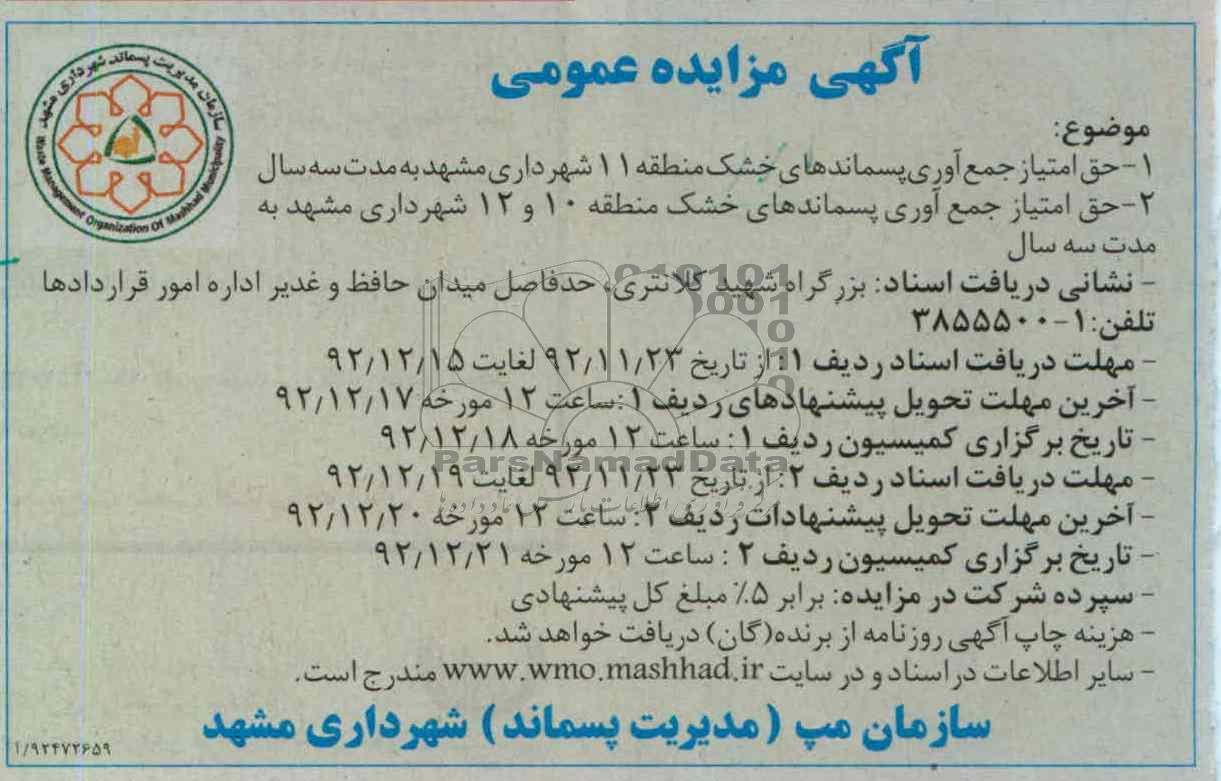 آگهی مزایده عمومی
سازمان مدیریت پسماند شهرداری مشهد
Waste Management Organization Of Mashhad Municipality
موضوع:
۱-حق امتیاز جمع آوری پسماندهای خشک منطقه ۱۱ شهرداری مشهد به مدت سه سال
۲-حق امتیاز جمع آوری پسماندهای خشک منطقه ۱۰ و ۱۲ شهرداری مشهد به
مدت سه سال
- نشانی دریافت اسناد: بزرگراه شهید کلانتری، حدفاصل میدان حافظ و غدیر اداره امور قراردادها
تلفن: ۱-۳۸۵۵۵۰۰
- مهلت دریافت اسناد ردیف ۱: از تاریخ ۹۲/۱۱/۲۳ لغایت ۹۲/۱۲/۱۵
- آخرین مهلت تحویل پیشنهادهای ردیف ۱: ساعت ۱۲ مورخه ۹۲/۱۲/۱۷
- تاریخ برگزاری کمیسیون ردیف ۱: ساعت ۱۲ مورخه ۹۲/۱۲/۱۸
- مهلت دریافت اسناد ردیف ۲: از تاریخ ۹۲/۱۱/۲۳ لغایت ۹۲/۱۲/۱۹
ParsNamadData
- آخرین مهلت تحویل پیشنهادات ردیف ۲: ساعت ۱۲ مورخه ۹۲/۱۲/۲۰
- تاریخ برگزاری کمیسیون ردیف ۲ : ساعت ۱۲ مورخه ۹۲/۱۲/۲۱
- سپرده شرکت در مزایده: برابر ۵٪ مبلغ کل پیشنهادی
- هزینه چاپ آگهی روزنامه از برنده(گان) دریافت خواهد شد.
- سایر اطلاعات در اسناد و در سایت www.wmo.mashhad.ir مندرج است.
سازمان مپ (مدیریت پسماند) شهرداری مشهد
۱/۹۲۴۷۲۶۵۹